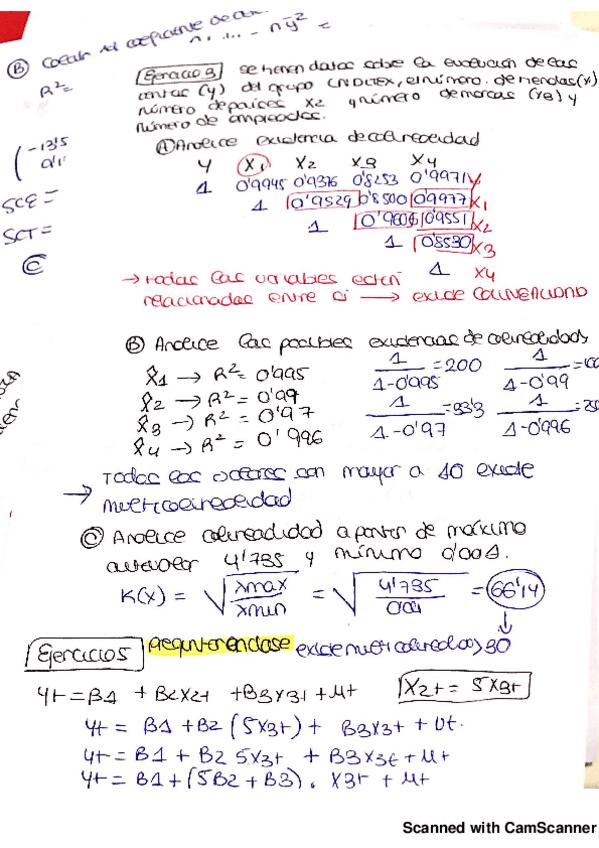 n y̅² =
Ⓑ
R² =
Ejercicio 3 se tienen datos sobre la evolución de las
ventas (y) del grupo INDITEX, el número de tiendas (x)
número de países X2 y número de marcas (x3) y
número de empleados.
Ⓐ Analice existencia de colinealidad
(-1315
SCE =
SCT =
Ⓒ
y X1 X2 X3 X4
1 0'9945 0'9376 0'8253 0'9971 y
1 0'9529 0'8500 0'9977 X1
1 0'9606 0'9551 X2
1 0'8530 X3
1 X4
→ todas las variables están
relacionadas entre si → existe COLINEALIDAD
Ⓑ Analice las posibles existencias de colinealidades
X̂1 → R² = 0'995
X̂2 → R² = 0'99
X̂3 → R² = 0'97
X̂4 → R² = 0'996
1/1-0'995 = 200 1/1-0'99
1/1-0'97 = 33'3 1/1-0'996
→ todos los son mayor a 10 existe
multicolinealidad
Ⓒ Analice colinealidad a partir de máximo
autovalor 4'785 y mínimo 0'001.
K(x) = √λmax/λmin = √4'785/0'001 = 66'14
existe multicolinealidad > 30
Ejercicio 5 Preguntar en clase
Yt = B1 + B2X2t + B3X3t + Ut X2t = 5X3t
Yt = B1 + B2 (5X3t) + B3X3t + Ut.
Yt = B1 + B2 5X3t + B3X3t + Ut
Yt = B1 + (5B2 + B3). X3t + Ut
Scanned with CamScanner